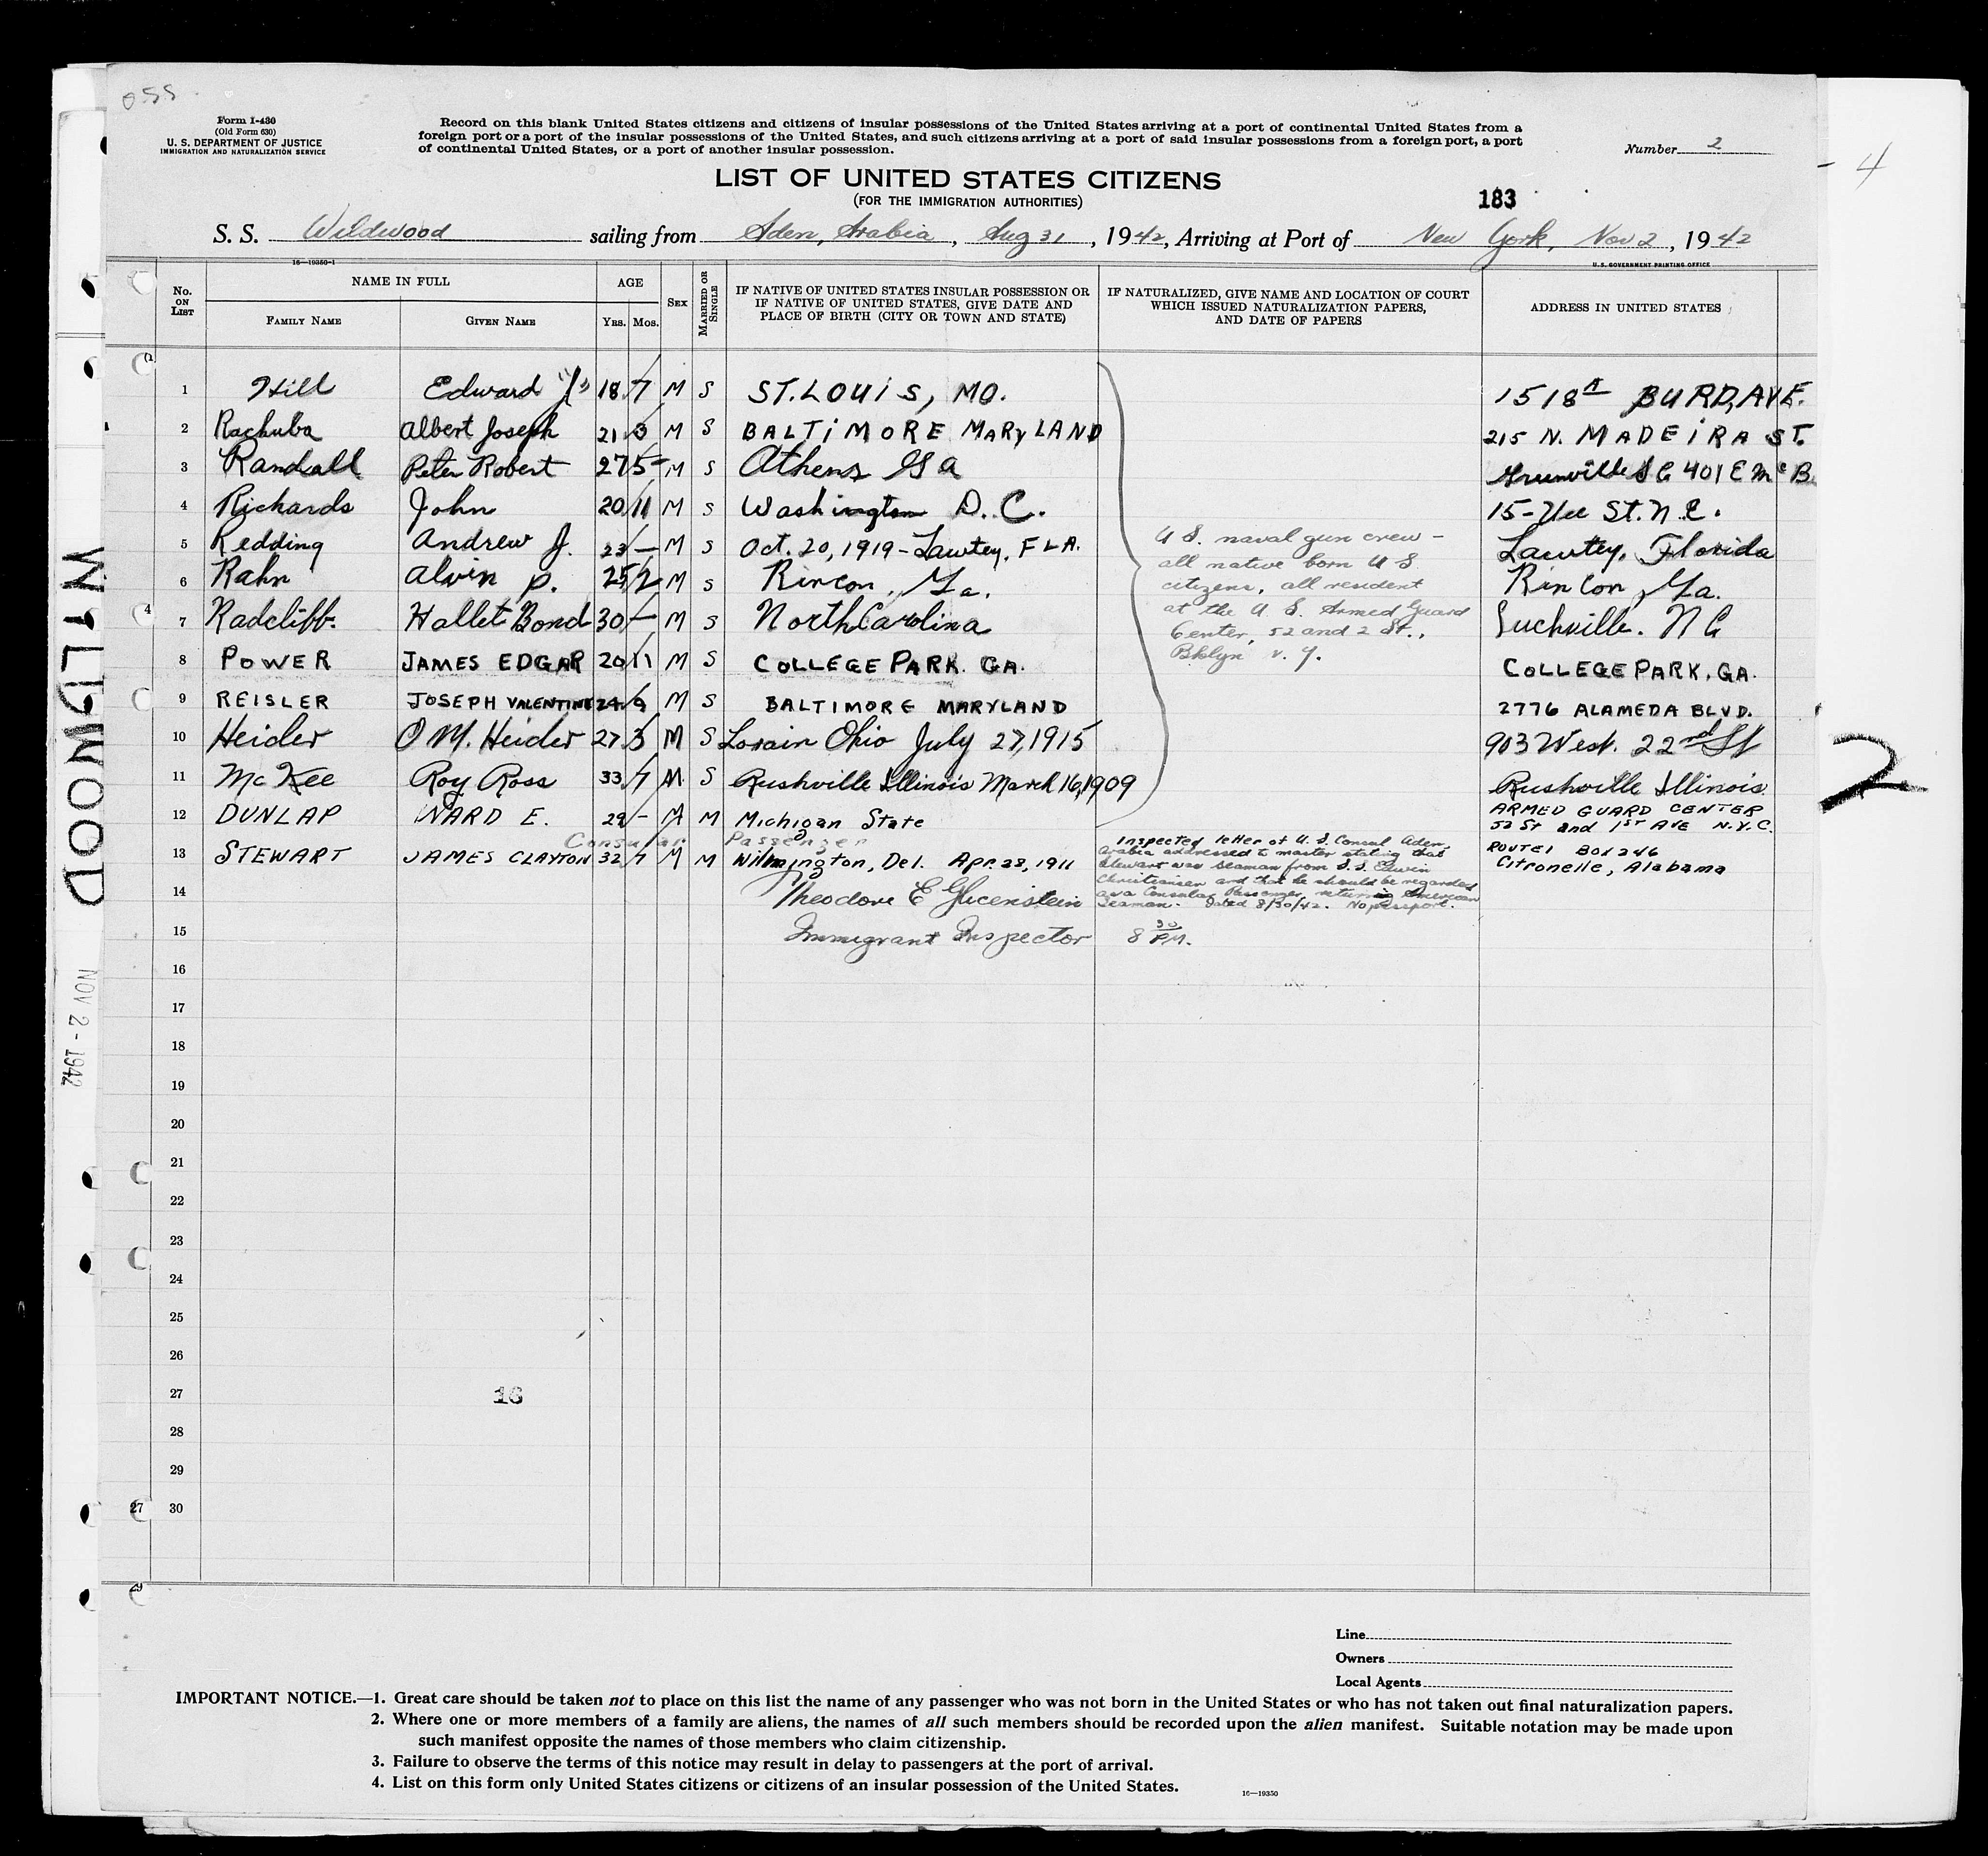 055
Form I-430
(Old Form 630)
U. S. DEPARTMENT OF JUSTICE
IMMIGRATION AND NATURALIZATION SERVICE
Record on this blank United States citizens and citizens of insular possessions of the United States arriving at a port of continental United States from a
foreign port or a port of the insular possessions of the United States, and such citizens arriving at a port of said insular possessions from a foreign port, a port
of continental United States, or a port of another insular possession.
Number 2
- 4
LIST OF UNITED STATES CITIZENS
(FOR THE IMMIGRATION AUTHORITIES)
183
S. S. Wildwood sailing from Aden, Arabia, Aug 31, 1942, Arriving at Port of New York, Nov 2, 1942
16—19350-1
U. S. GOVERNMENT PRINTING OFFICE
No. ON LIST
NAME IN FULL
FAMILY NAME
GIVEN NAME
AGE
YRS. MOS.
SEX
MARRIED OR SINGLE
IF NATIVE OF UNITED STATES INSULAR POSSESSION OR
IF NATIVE OF UNITED STATES, GIVE DATE AND
PLACE OF BIRTH (CITY OR TOWN AND STATE)
IF NATURALIZED, GIVE NAME AND LOCATION OF COURT
WHICH ISSUED NATURALIZATION PAPERS,
AND DATE OF PAPERS
ADDRESS IN UNITED STATES
1 Hill Edward "J" 18 7 M S ST. LOUIS, MO. 1518A BURD, AVE.
2 Rachuba Albert Joseph 21 3 M S BALTIMORE MARYLAND 215 N. MADEIRA ST.
3 Randall Peter Robert 27 5 M S Athens Ga Greenville S C 401 E Mc B
4 Richards John 20 11 M S Washington D. C. 15- St. N. E.
5 Redding Andrew J. 23 — M S Oct. 20, 1919 - Lawtey, FLA. Lawtey, Florida
6 Rahn Alvin P. 25 2 M S Rincon, Ga. Rincon, Ga.
7 Radcliff. Hallet Bond 30 — M S North Carolina N C
8 POWER JAMES EDGAR 20 11 M S COLLEGE PARK. GA. COLLEGE PARK, GA.
9 REISLER JOSEPH VALENTINE 24 9 M S BALTIMORE MARYLAND 2776 ALAMEDA BLVD.
10 Heider O M. Heider 27 3 M S Lorain Ohio July 27, 1915 903 West. 22nd St
11 McKee Roy Ross 33 7 M S Rushville Illinois March 16, 1909 Rushville Illinois
12 DUNLAP WARD E. 29 - M M Michigan State ARMED GUARD CENTER
52 St and 1ST AVE N.Y.C.
Consular Passenger
13 STEWART JAMES CLAYTON 32 7 M M Wilmington, Del. Apr. 28, 1911 ROUTE 1 BOX 246
Citronelle, Alabama
U S. naval gun crew -
all native born U S
citizens, all resident
at the U S. Armed Guard
Center, 52 and 2 St.,
Bklyn N. Y.
Inspected letter of U. S. Consul Aden,
Arabia addressed to master stating that
Stewart was seaman from S.S. Edwin
Christiansen and that he should be regarded
as a Consular Passenger, returning American
Seaman. Dated 8/30/42. No passport.
14 Theodore E
15 Immigrant Inspector 8 30 P.M.
16
17
18
19
20
21
22
23
24
25
26
27
28
29
30
16
27
29
4
WILDWOOD
NOV 2 - 1942
2
Line
Owners
Local Agents
IMPORTANT NOTICE.—1. Great care should be taken not to place on this list the name of any passenger who was not born in the United States or who has not taken out final naturalization papers.
2. Where one or more members of a family are aliens, the names of all such members should be recorded upon the alien manifest. Suitable notation may be made upon
such manifest opposite the names of those members who claim citizenship.
3. Failure to observe the terms of this notice may result in delay to passengers at the port of arrival.
4. List on this form only United States citizens or citizens of an insular possession of the United States.
16—19350